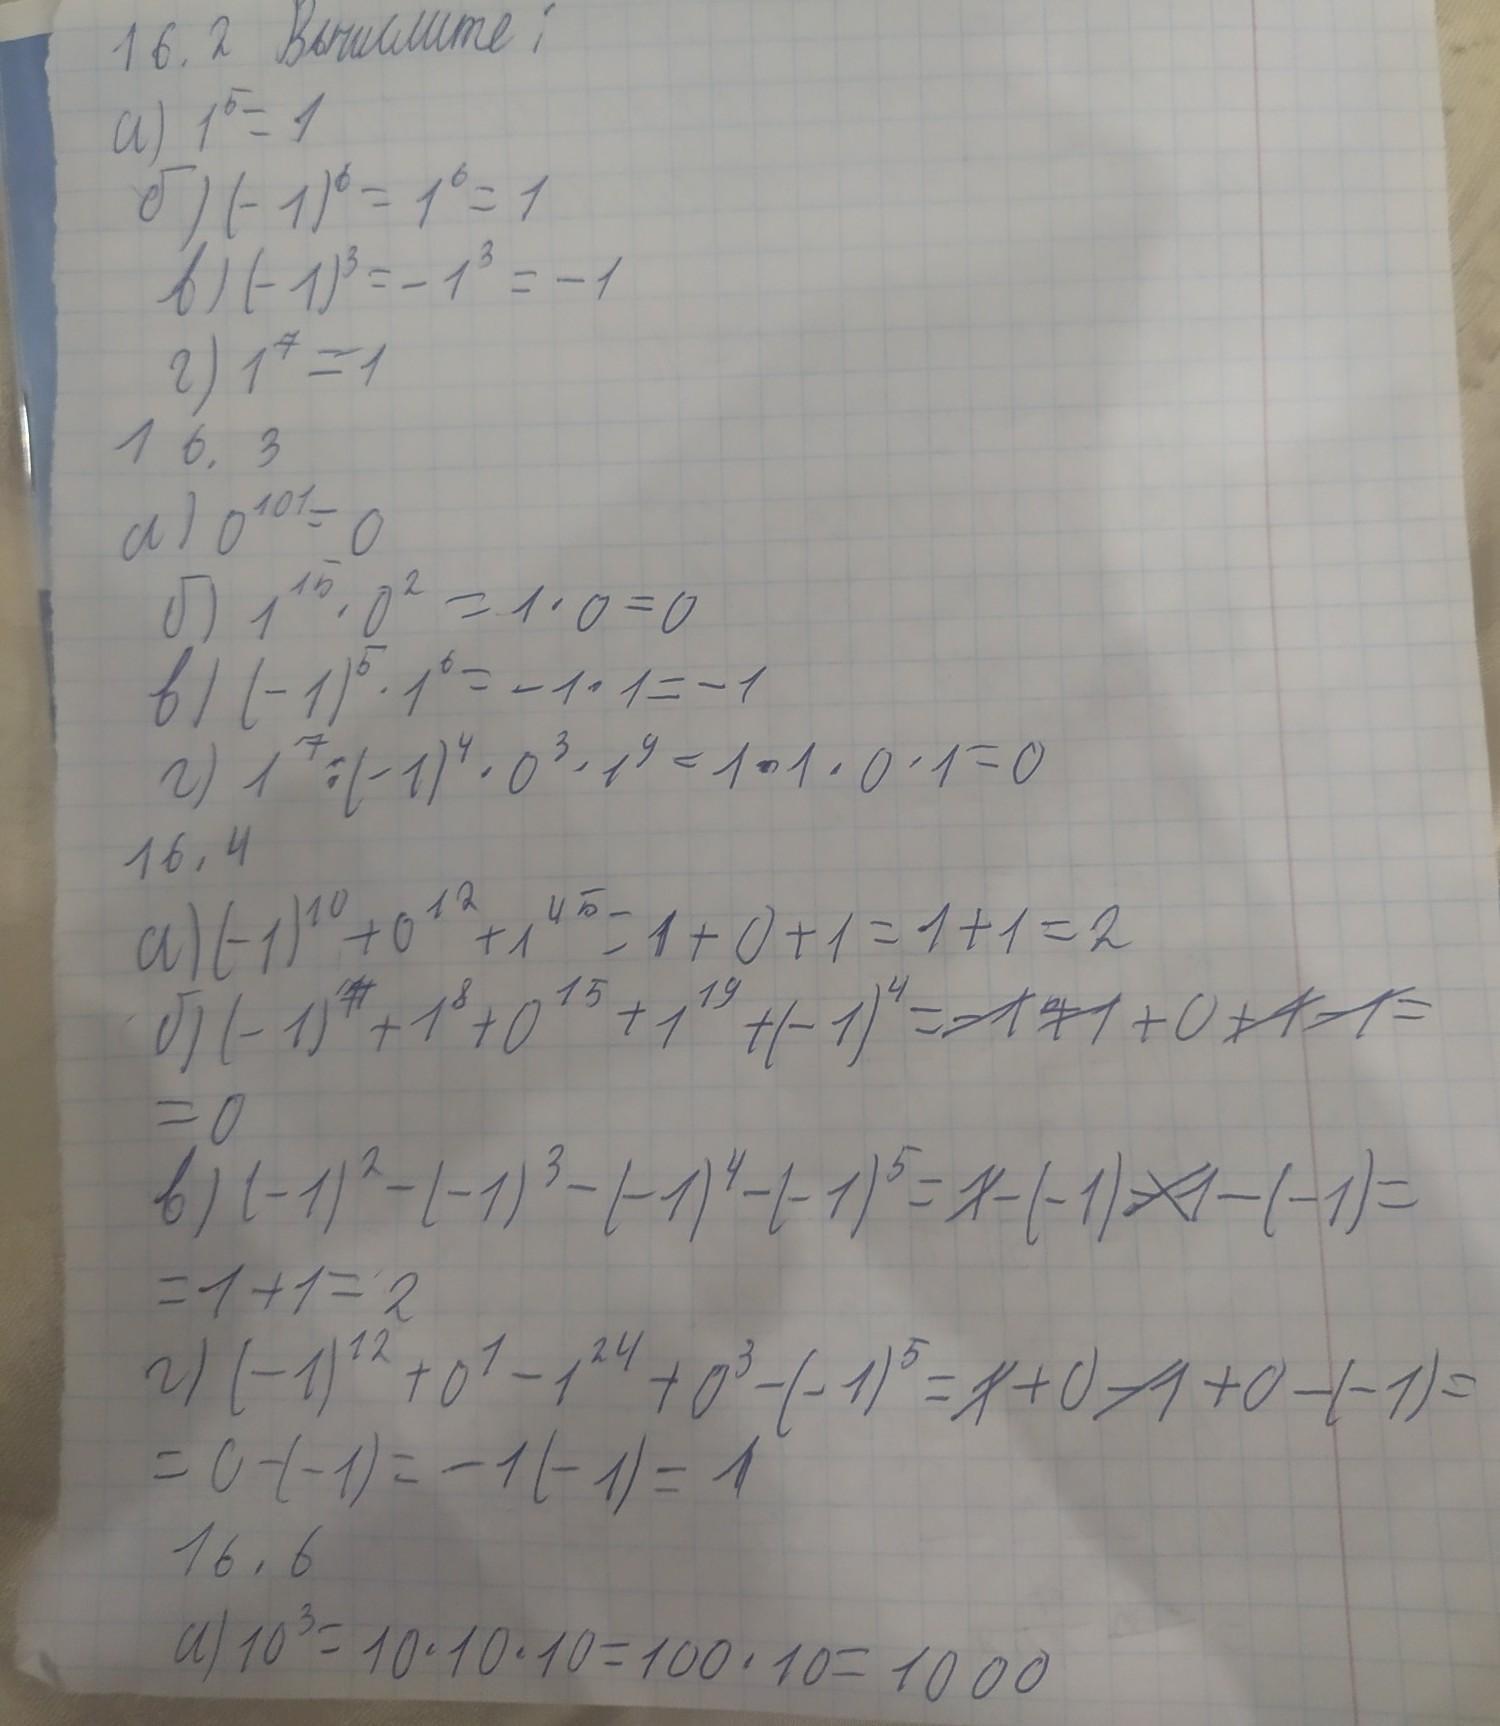 16.2 Вычислите:
а) 1⁵ = 1
б) (-1)⁶ = 1⁶ = 1
в) (-1)³ = -1³ = -1
г) 1⁷ = 1
16.3
а) 0¹⁰¹ = 0
б) 1¹⁵ · 0² = 1 · 0 = 0
в) (-1)⁵ · 1⁶ = -1 · 1 = -1
г) 1⁷ : (-1)⁴ · 0³ · 1⁹ = 1 · 1 · 0 · 1 = 0
16.4
а) (-1)¹⁰ + 0¹² + 1⁴⁵ = 1 + 0 + 1 = 1 + 1 = 2
б) (-1) + 1⁸ + 0¹⁵ + 1¹⁹ + (-1)⁴ = -1 + 1 + 0 + 1 - 1 =
= 0
в) (-1)² - (-1)³ - (-1)⁴ - (-1)⁵ = 1 - (-1) - 1 - (-1) =
= 1 + 1 = 2
г) (-1)¹² + 0¹ - 1²⁴ + 0³ - (-1)⁵ = 1 + 0 - 1 + 0 - (-1) =
= 0 - (-1) = -1 (-1) = 1
16.6
а) 10³ = 10 · 10 · 10 = 100 · 10 = 1000